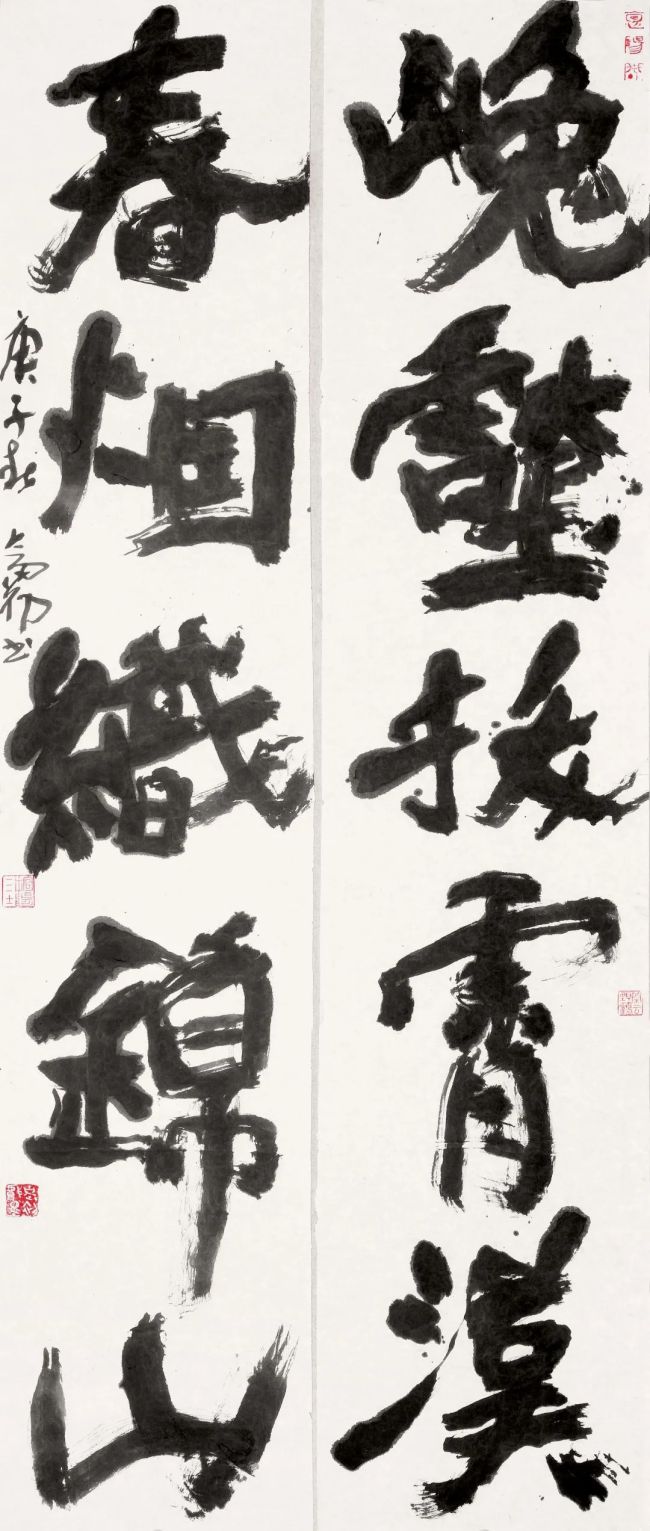 壑拔霄漢
春烟織錦山
庚子秋 书